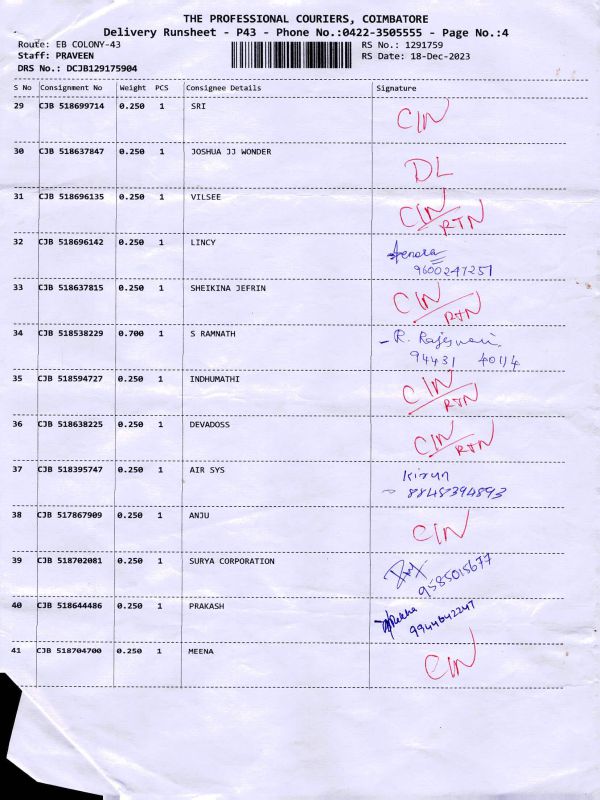 THE PROFESSIONAL COURIERS, COIMBATORE
Delivery Runsheet - P43 - Phone No.:0422-3505555 - Page No.:4
Route: EB COLONY-43 RS No.: 1291759
Staff: PRAVEEN RS Date: 18-Dec-2023
DRS No.: DCJB129175904
S No Consignment No Weight PCS Consignee Details Signature
29 CJB 518699714 0.250 1 SRI CIN
30 CJB 518637847 0.250 1 JOSHUA JJ WONDER DL
31 CJB 518696135 0.250 1 VILSEE CIN/RTN
32 CJB 518696142 0.250 1 LINCY
9600247251
33 CJB 518637815 0.250 1 SHEIKINA JEFRIN CIN/RTN
34 CJB 518538229 0.700 1 S RAMNATH - R. Rajeswari
94431 40114
35 CJB 518594727 0.250 1 INDHUMATHI CIN/RTN
36 CJB 518638225 0.250 1 DEVADOSS CIN/RTN
37 CJB 518395747 0.250 1 AIR SYS Kirun
- 8848394893
38 CJB 517867909 0.250 1 ANJU CIN
39 CJB 518702081 0.250 1 SURYA CORPORATION
9585015677
40 CJB 518644486 0.250 1 PRAKASH
9944642247
41 CJB 518704700 0.250 1 MEENA CIN